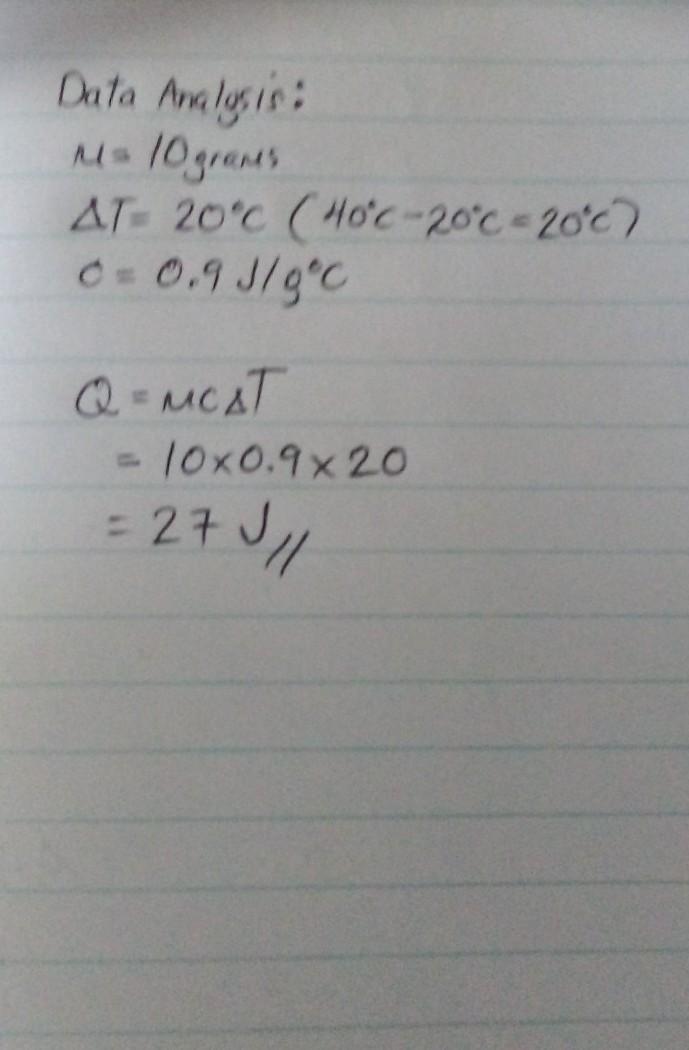 Data Analysis:
M = 10 grams
ΔT = 20°C (40°C - 20°C = 20°C)
C = 0.9 J/g°C
Q = MCΔT
= 10 x 0.9 x 20
= 27 J //